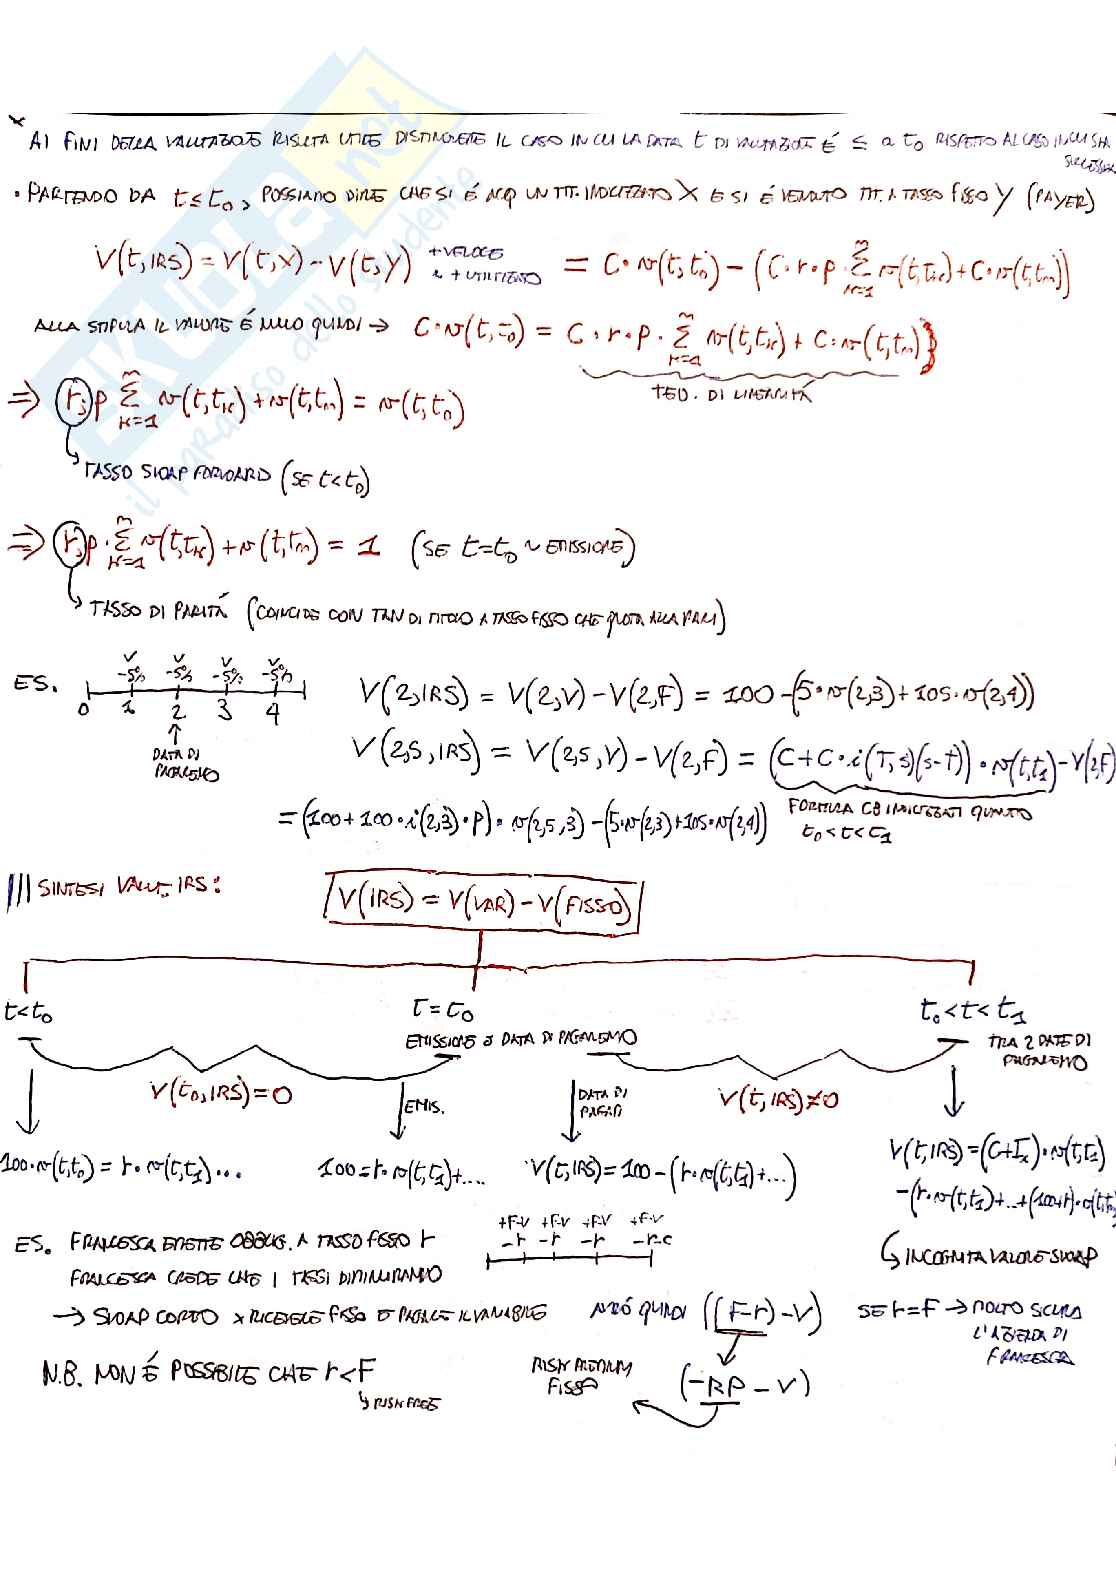 AI FINI DELLA VALUTAZIONE RISULTA UTILE DISTINGUERE IL CASO IN CUI LA DATA t DI VALUTAZIONE É ≤ a t₀ RISPETTO AL CASO IN CUI SIA SUCCESSIVA
• PARTENDO DA t≤t₀, POSSIAMO DIRE CHE SI É ACQ UN TIT. INDICIZZATO X E SI É VENDUTO TIT. A TASSO FISSO Y (PAYER)
V(t,IRS) = V(t,X) - V(t,Y) +VELOCE e + UTILIZZATO = C·v(t,t₀) - (C·r·p·Σ_{k=1}^{m} v(t,tₖ) + C·v(t,tₘ))
ALLA STIPULA IL VALORE É NULLO QUINDI → C·v(t,t₀) = C·r·p·Σ_{k=1}^{m} v(t,tₖ) + C·v(t,tₘ)}
TEO. DI LINEARITÁ
⇒ rₛ p Σ_{k=1}^{m} v(t,tₖ) + v(t,tₘ) = v(t,t₀)
TASSO SWAP FORWARD (SE t<t₀)
⇒ rₛ p·Σ_{k=1}^{m} v(t,tₖ) + v(t,tₘ) = 1 (SE t=t₀ ~ EMISSIONE)
TASSO DI PARITÁ (COINCIDE CON TAN DI TITOLO A TASSO FISSO CHE QUOTA ALLA PARI)
ES.
V V V V
-5% -5% -5% -5%
0 1 2 3 4
DATA DI PAGAMENTO
V(2,IRS) = V(2,V) - V(2,F) = 100 - (5·v(2,3) + 105·v(2,4))
V(2,5,IRS) = V(2,5,V) - V(2,F) = (C+C·i(T,s)(s-T))·v(t,t₁) - V(2,F)
= (100+100·i(2,3)·p)·v(2,5,3) - (5·v(2,3)+105·v(2,4))
FORMULA CB INDICIZZATI QUANTO
t₀<t<t₁
SINTESI VALUT. IRS:
V(IRS) = V(VAR) - V(FISSO)
t<t₀
t=t₀
t₀<t<t₁
EMISSIONE O DATA DI PAGAMENTO
TRA 2 DATE DI PAGAMENTO
V(t₀,IRS)=0
EMIS.
DATA DI PAGAM
V(t,IRS)≠0
100·v(t,t₀) = r·v(t,t₁)...
100=r·v(t,t₁)+....
V(t,IRS)=100-(r·v(t,t₁)+...)
V(t,IRS)=(C+Iₓ)·v(t,t₁)
-(r·v(t,t₁)+...+(100+r)·v(t,tₘ
INCOGNITA VALORE SWAP
ES. FRANCESCA EMETTE OBBLIG. A TASSO FISSO r
+F-V +F-V +F-V +F-V
-r -r -r -r-c
FRANCESCA CREDE CHE I TASSI DIMINUIRANNO
→ SWAP CORTO x RICEVERE FISSO E PAGARE IL VARIABILE
AVRÓ QUINDI ((F-r)-V)
SE r=F → MOLTO SICURA L'AZIENDA DI FRANCESCA
N.B. NON É POSSIBILE CHE r<F
RISK FREE
RISK PREMIUM FISSO
(-RP-V)